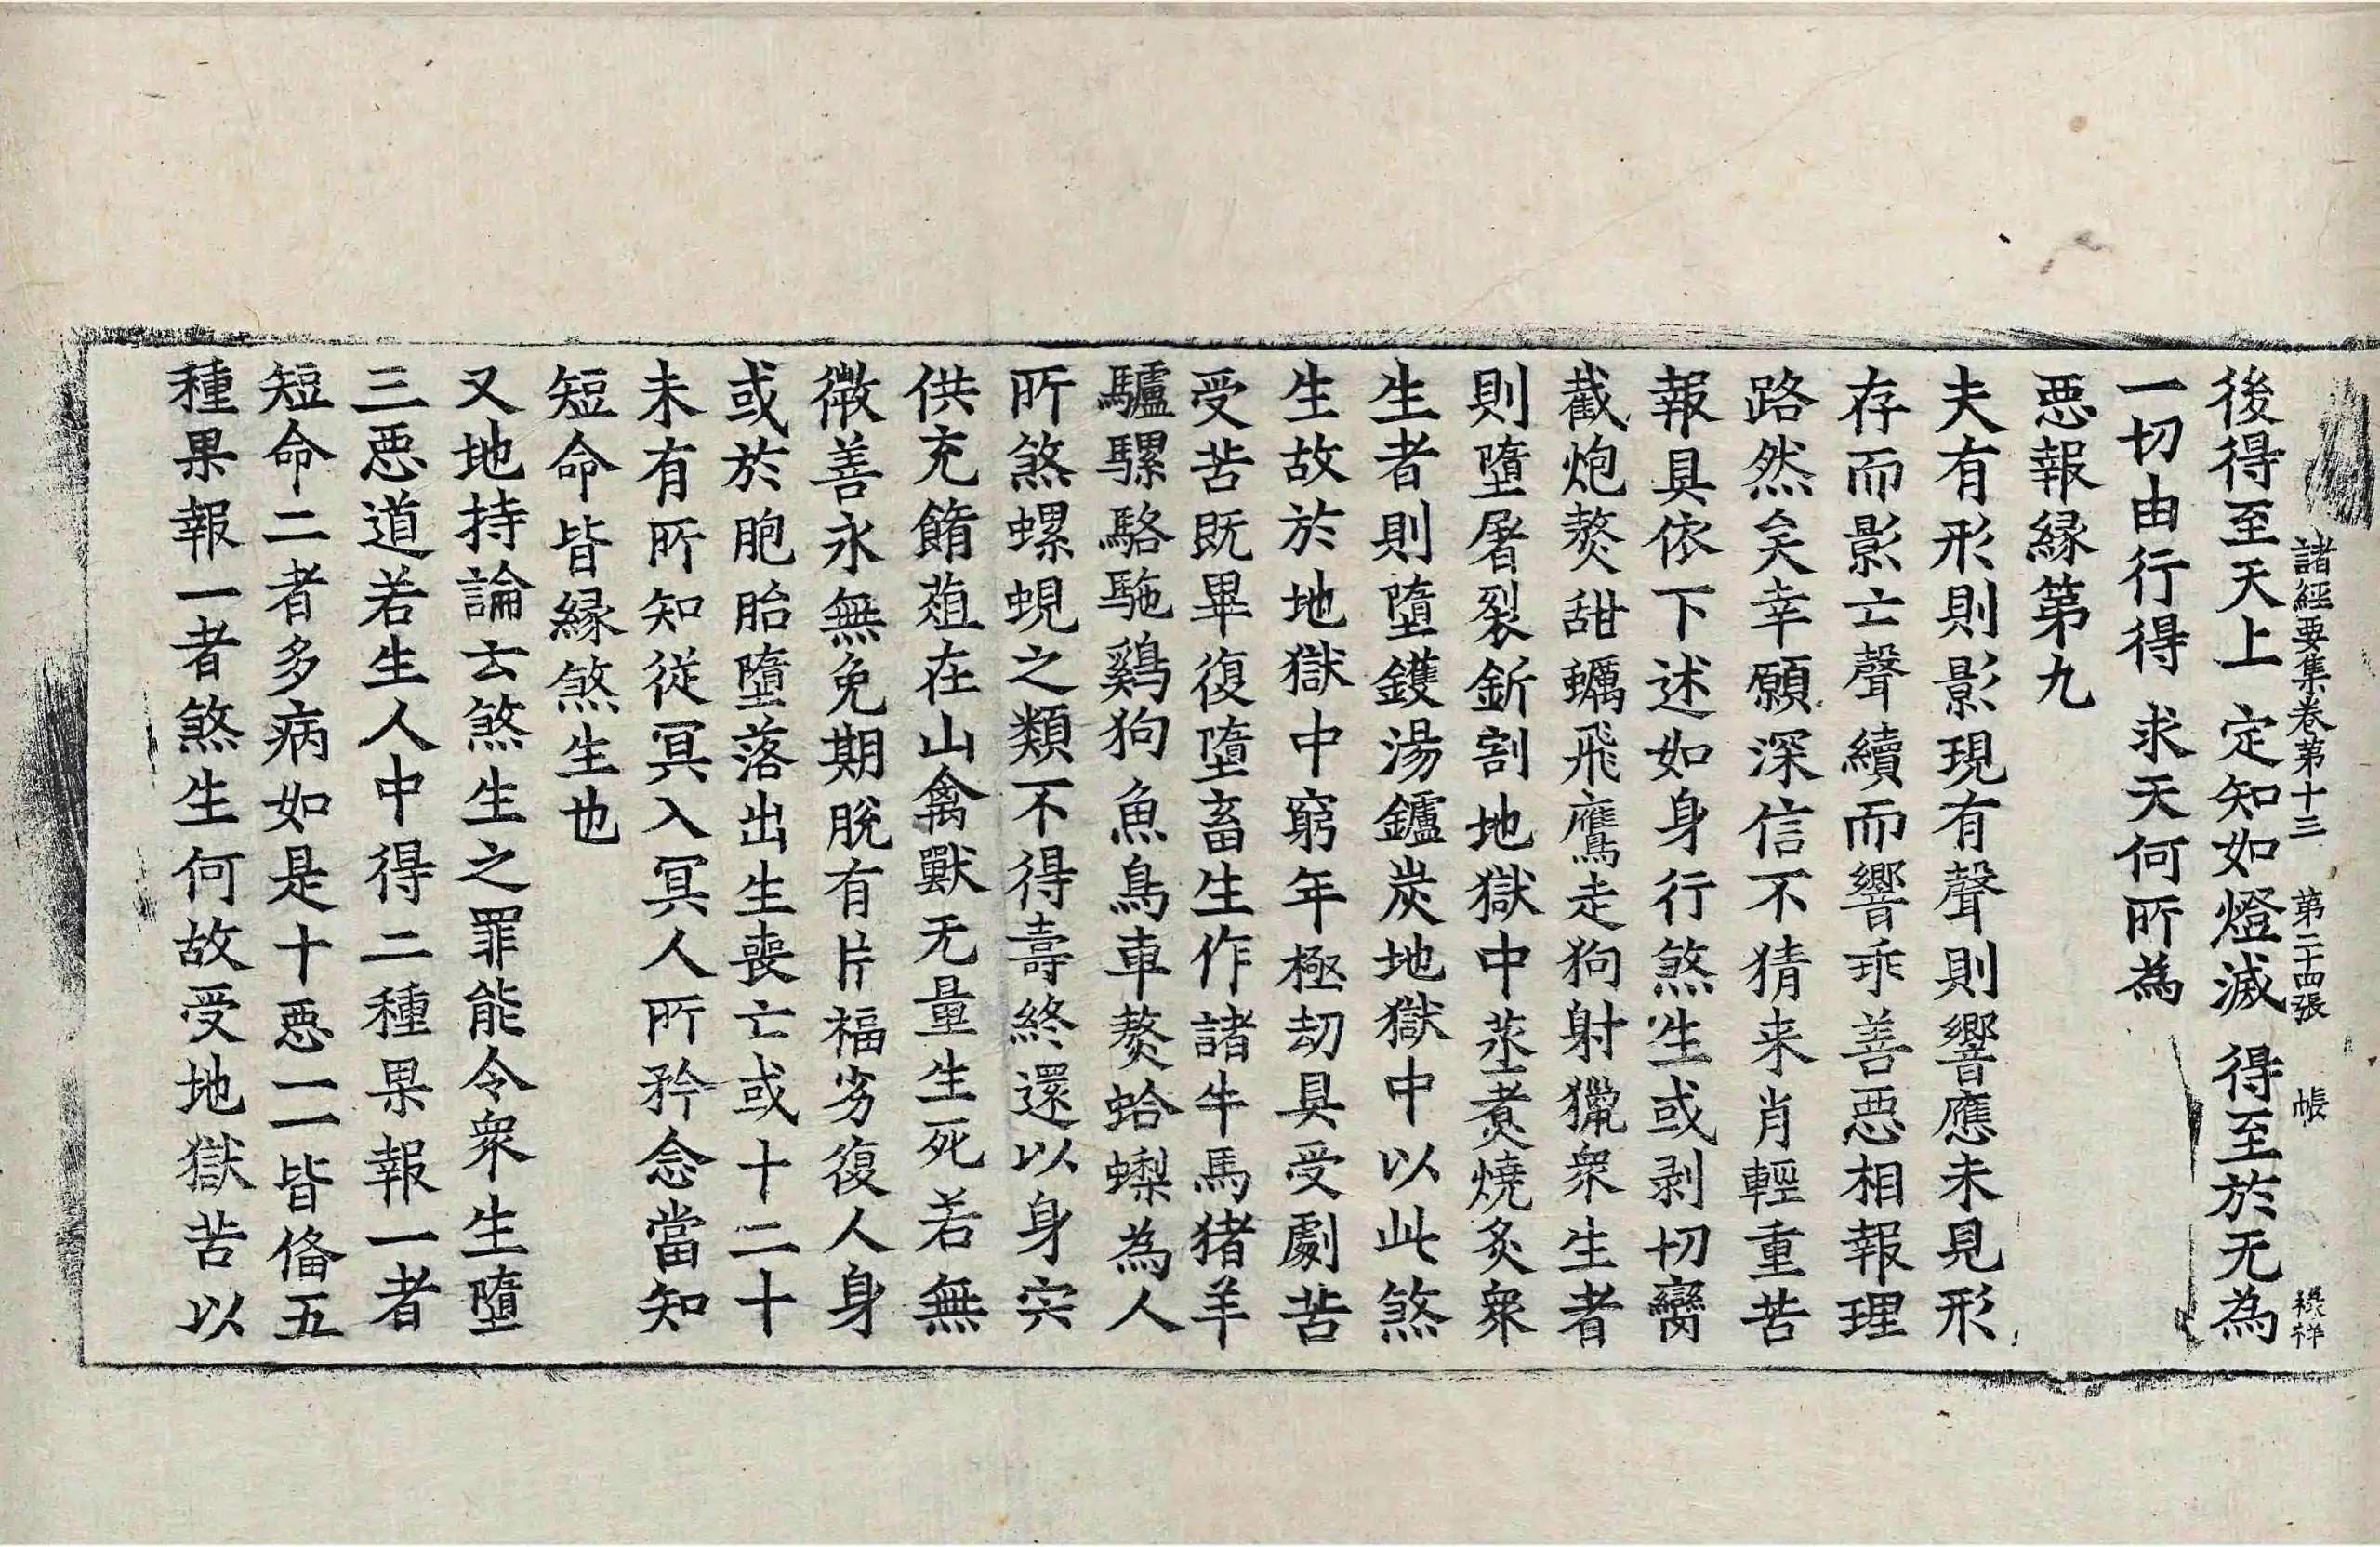 諸經要集卷第十三 第二十四張 帳
後得至天上 定知如燈滅 得至於无為
一切由行得 求天何所為
惡報緣第九
夫有形則影現有聲則響應未見形
存而影亡聲續而響乖善惡相報理
路然矣幸願深信不猜来肖輕重苦
報具依下述如身行煞生或剥切臠
截炮熬甜蠣飛鷹走狗射獵衆生者
則墮屠裂斫割地獄中蒸煑燒炙衆
生者則墮鑊湯鑪炭地獄中以此煞
生故於地獄中窮年極劫具受劇苦
受苦既畢復墮畜生作諸牛馬猪羊
驢騾駱駞鷄狗魚鳥車熬蛤蜊為人
所煞螺蜆之類不得壽終還以身宍
供充餚葅在山禽獸无量生死若無
微善永無免期脫有片福劣復人身
或於胞胎墮落出生喪亡或十二十
未有所知從冥入冥人所矜念當知
短命皆緣煞生也
又地持論云煞生之罪能令衆生墮
三惡道若生人中得二種果報一者
短命二者多病如是十惡一一皆俻五
種果報一者煞生何故受地獄苦以